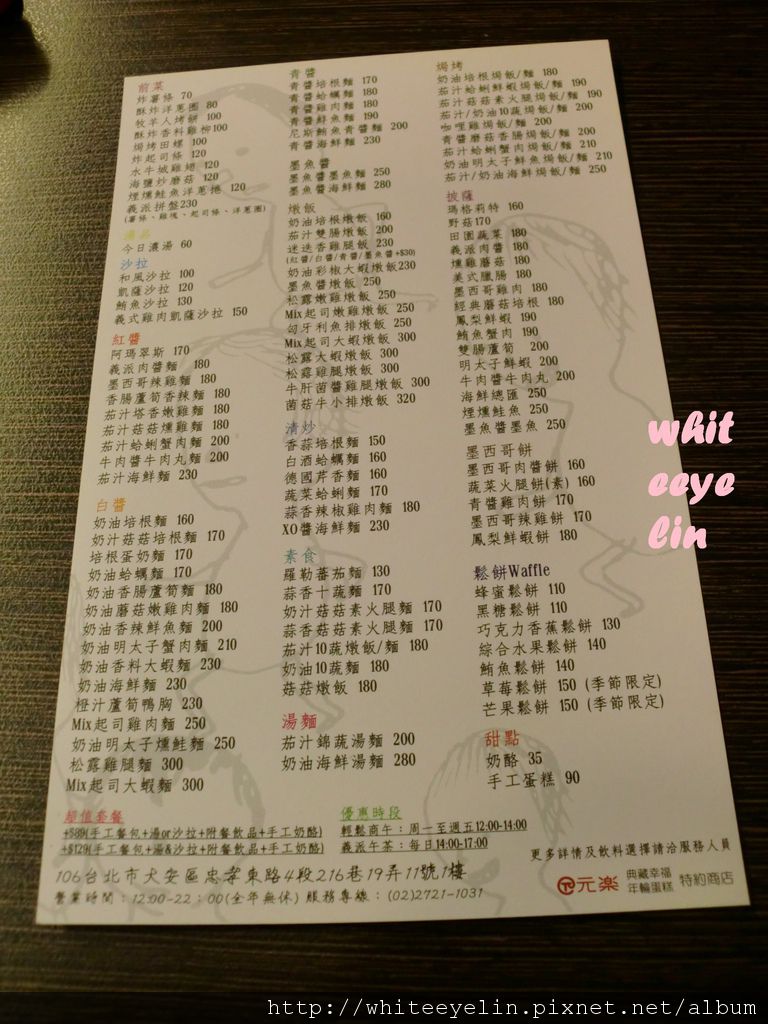 前菜
炸薯條 70
酥炸洋蔥圈 80
牧羊人烤餅 100
酥炸香料雞柳100
焗烤田螺 100
炸起司條 120
水牛城雞翅 120
海鹽炒蘑菇 120
煙燻鮭魚洋蔥捲 120
義派拼盤230
(薯條、雞塊、起司條、洋蔥圈)
湯品
今日濃湯 60
沙拉
和風沙拉 100
凱薩沙拉 120
鮪魚沙拉 130
義式雞肉凱薩沙拉 150
紅醬
阿瑪翠斯 170
義派肉醬麵 180
墨西哥辣雞麵 180
香腸蘆筍香辣麵 180
茄汁塔香嫩雞麵 180
茄汁菇菇燻雞麵 180
茄汁蛤蜊蟹肉麵 200
牛肉醬牛肉丸麵 200
茄汁海鮮麵 230
白醬
奶油培根麵 160
奶汁菇菇培根麵 170
培根蛋奶麵 170
奶油蛤蠣麵 170
奶油香腸蘆筍麵 180
奶油蘑菇嫩雞肉麵 180
奶油香辣鮮魚麵 200
奶油明太子蟹肉麵 210
奶油香料大蝦麵 230
奶油海鮮麵 230
橙汁蘆筍鴨胸 230
Mix起司雞肉麵 250
奶油明太子燻鮭麵 250
松露雞腿麵 300
Mix起司大蝦麵 300
青醬
青醬培根麵 170
青醬蛤蠣麵 180
青醬雞肉麵 180
青醬鮮魚麵 190
尼斯鮪魚青醬麵 200
青醬海鮮麵 230
墨魚醬
墨魚醬墨魚麵 250
墨魚醬海鮮麵 280
燉飯
奶油培根燉飯 160
茄汁雙腸燉飯 200
迷迭香雞腿飯 230
(紅醬/白醬/青醬/墨魚醬+$30)
奶油彩椒大蝦燉飯230
墨魚醬燉飯 250
松露嫩雞燉飯 250
Mix起司嫩雞燉飯 250
匈牙利魚排燉飯 250
Mix起司大蝦燉飯 300
松露大蝦燉飯 300
松露雞腿燉飯 300
牛肝菌醬雞腿燉飯 300
菌菇牛小排燉飯 320
清炒
香蒜培根麵 150
白酒蛤蠣麵 160
德國芹香麵 160
蔬菜蛤蜊麵 170
蒜香辣椒雞肉麵 180
XO醬海鮮麵 230
素食
羅勒蕃茄麵 130
蒜香十蔬麵 170
奶汁菇菇素火腿麵 170
蒜香菇菇素火腿麵 170
茄汁10蔬燉飯/麵 180
奶油10蔬麵 180
菇菇燉飯 180
湯麵
茄汁錦蔬湯麵 200
奶油海鮮湯麵 280
焗烤
奶油培根焗飯/麵 180
茄汁蛤蜊鮮蝦焗飯/麵 190
茄汁菇菇素火腿焗飯/麵 190
茄汁/奶油10蔬焗飯/麵 200
咖哩雞焗飯/麵 200
青醬蘑菇香腸焗飯/麵 200
茄汁蛤蜊蟹肉焗飯/麵 210
奶油明太子鮮魚焗飯/麵 210
茄汁/奶油海鮮焗飯/麵 250
披薩
瑪格莉特 160
野菇170
田園蔬菜 180
義派肉醬 180
燻雞蘑菇 180
美式臘腸 180
墨西哥雞肉 180
經典蘑菇培根 180
鳳梨鮮蝦 190
鮪魚蟹肉 190
雙腸蘆筍 200
明太子鮮蝦 200
牛肉醬牛肉丸 200
海鮮總匯 250
煙燻鮭魚 250
墨魚醬墨魚 250
墨西哥餅
墨西哥肉醬餅 160
蔬菜火腿餅(素) 160
青醬雞肉餅 170
墨西哥辣雞餅 170
鳳梨鮮蝦餅 180
鬆餅Waffle
蜂蜜鬆餅 110
黑糖鬆餅 110
巧克力香蕉鬆餅 130
綜合水果鬆餅 140
鮪魚鬆餅 140
草莓鬆餅 150 (季節限定)
芒果鬆餅 150 (季節限定)
甜點
奶酪 35
手工蛋糕 90
超值套餐
+$89(手工餐包+湯or沙拉+附餐飲品+手工奶酪)
+$129(手工餐包+湯&沙拉+附餐飲品+手工奶酪)
優惠時段
輕鬆商午：周一至週五12:00-14:00
義派午茶：每日14:00-17:00
更多詳情及飲料選擇請洽服務人員
106台北市大安區忠孝東路4段216巷19弄11號1樓
營業時間：12:00-22：00(全年無休) 服務專線：(02)2721-1031
元樂 典藏幸福 年輪蛋糕 特約商店
whit
eeye
lin
http://whiteeyelin.pixnet.net/album